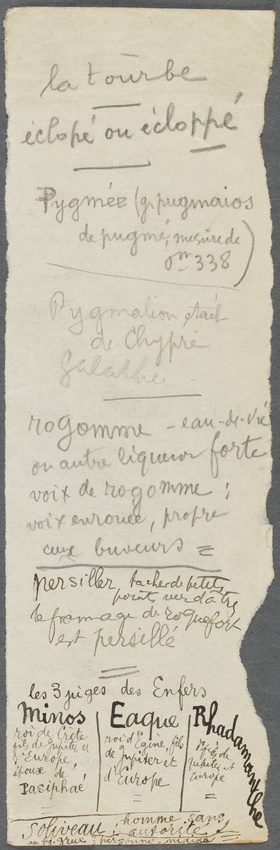 la tourbe
éclopé ou écloppé
Pygmée (g. pugmaios
de pugmé, mesure de
0m 338)
Pygmalion était
de Chypre
Galathé
rogomme - eau-de-vie
ou autre liqueur forte
voix de rogomme :
voix enrouée, propre
aux buveurs =
persiller, tacher de petits
point verdâtre
le fromage de roquefort
est persillé
les 3 juges des Enfers
Minos
roi de Crète
fils de Jupiter et
d'Europe,
époux de
Pasiphaé
Eaque
roi d'Egine, fils
de Jupiter et
d'Europe
Rhadamanthe
fils de
Jupiter et
Europe
Soliveau, homme sans
autorité